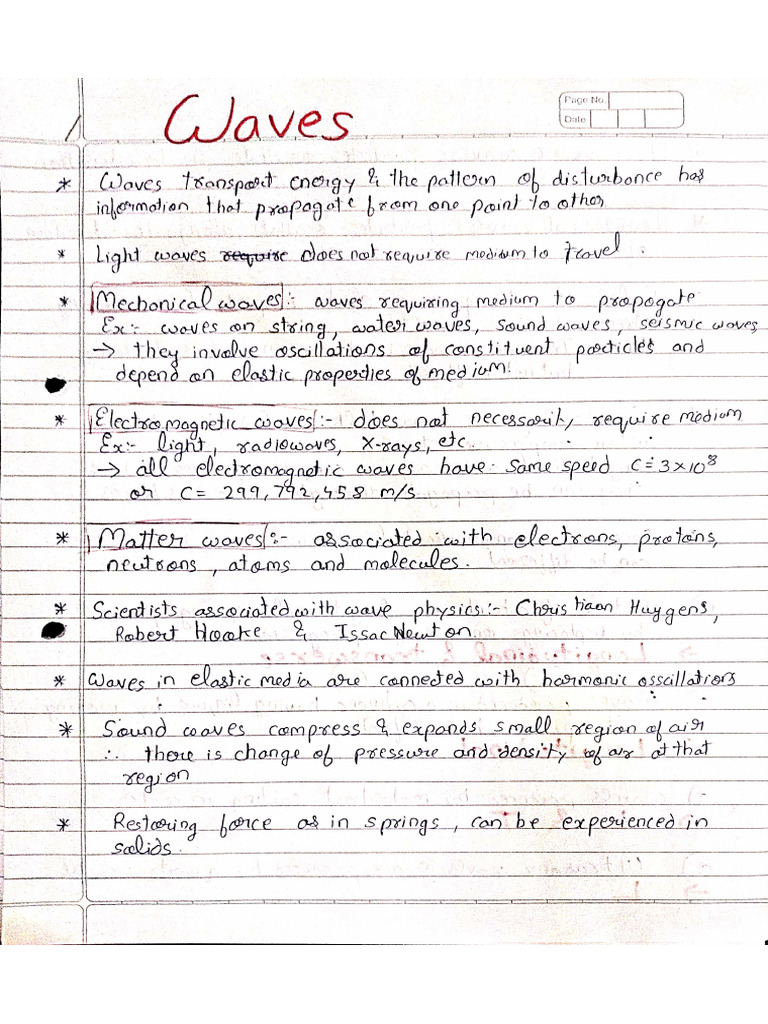 Waves
Page No.
Date
* Waves transport energy & the pattern of disturbance has
information that propogate from one point to other
* Light waves require does not require medium to travel.
* Mechanical waves :- waves requiring medium to propogate
Ex:- waves on string, water waves, sound waves, seismic waves
→ they involve oscillations of constituent particles and
depend on elastic properties of medium.
* Electromagnetic waves :- does not necessarily require medium
Ex:- light, radiowaves, X-rays, etc.
→ all electromagnetic waves have same speed C = 3×10⁸
or C = 299,792,458 m/s
* Matter waves :- associated with electrons, protons,
neutrons, atoms and molecules.
* Scientists associated with wave physics:- Christiaan Huygens,
Robert Hooke & Issac Newton.
* Waves in elastic media are connected with harmonic osscillations
* Sound waves compress & expands small region of air
∴ there is change of pressure and density of air at that
region
* Restoring force as in springs, can be experienced in
solids.